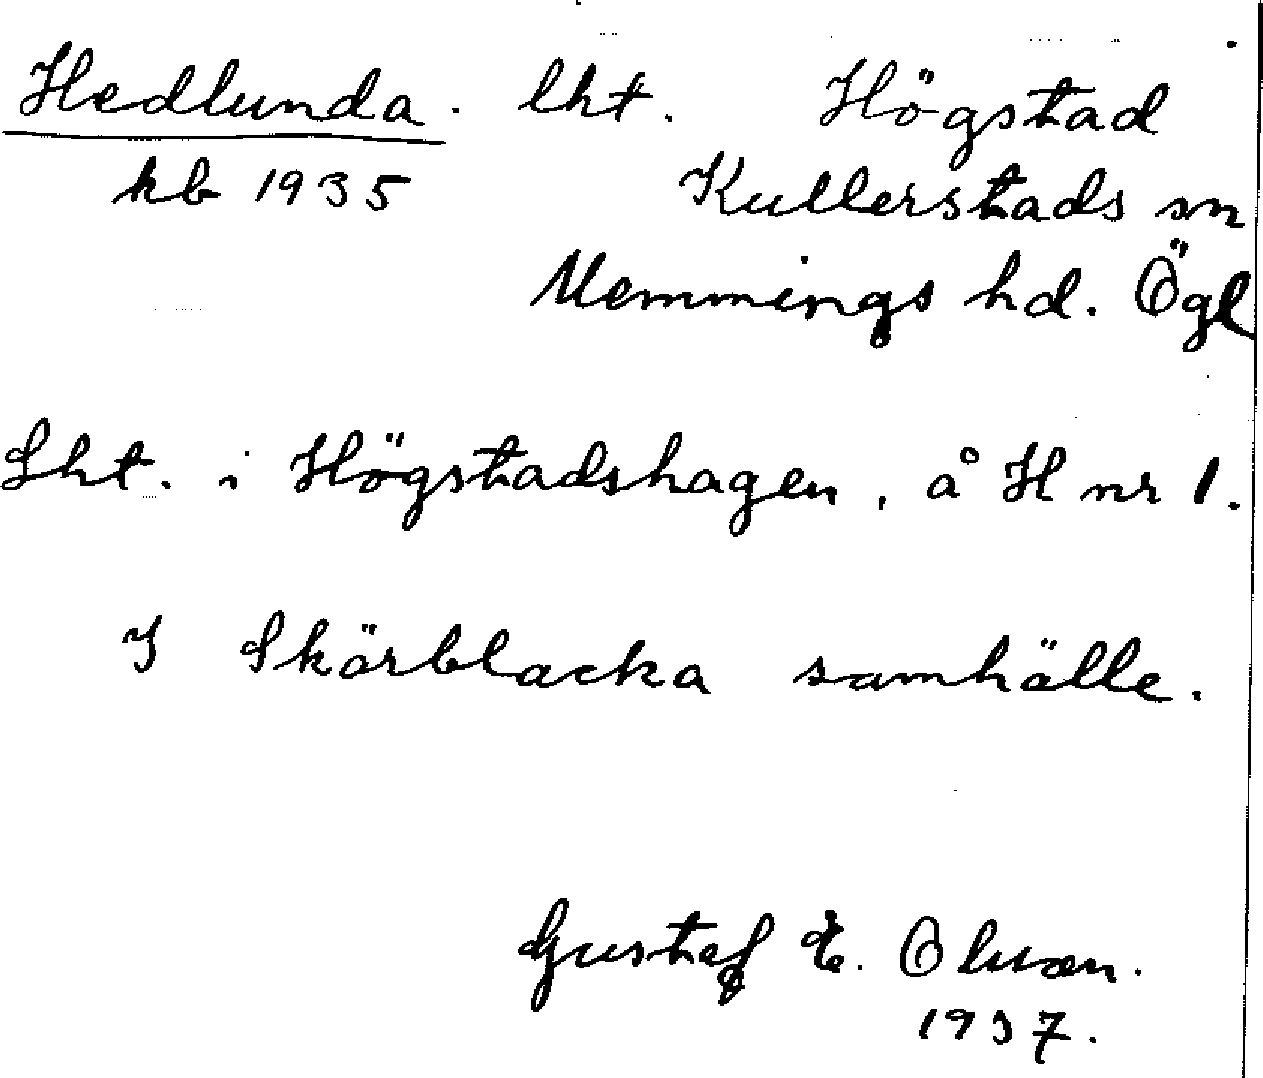 Hedlunda. lht. Högstad
kb 1935 Kullerstads sn
Memmings hd. Ögl
Lht. i Högstadshagen, å H nr 1.
I Skärblacka samhälle.
Gustaf E. Olsson.
1937.